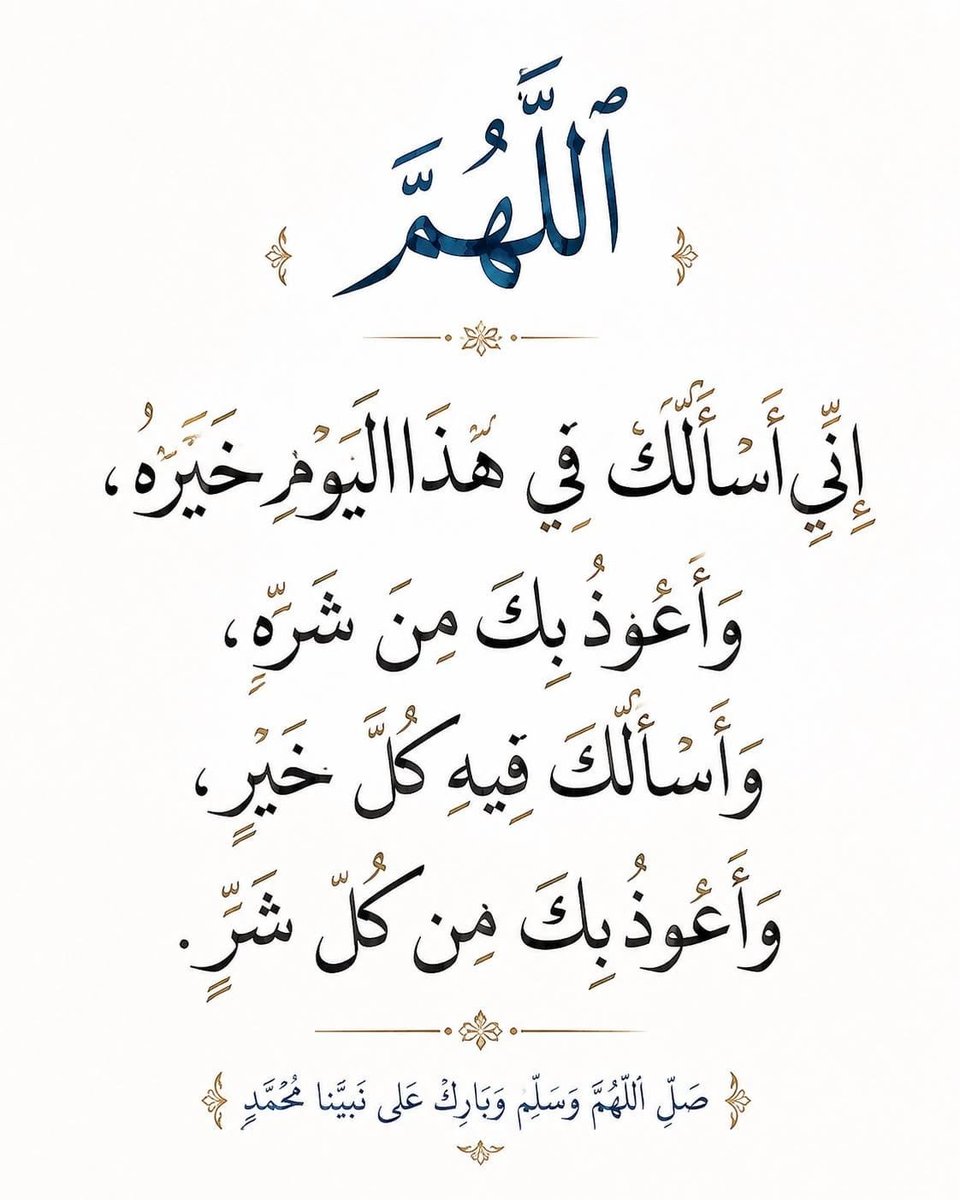 ٱللَّهُمَّ
إِنِّي أَسْأَلُّكَ فِي هَّذَا الَيَوْمِ خَيَرَهُ،
وَأَعُوذُ بِكَ مِنَ شَرِّهِ،
وَأَسْأَلُّكَ فِيهِ كُلَّ خَيْرٍ،
وَأَعُوذُ بِكَ مِن كُلّ شَرٍّ.
صَلِّ ٱللّهُمَّ وَسَلِّمْ وَبَارِكْ عَلى نَبيَّنا مُحْمَّدٍ